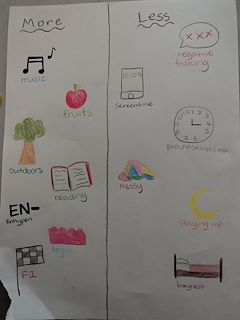 More
music
fruits
outdoors
reading
EN-
Enhypen
legos
F1
Less
xxx
negative
talking
10:04
Screentime
procrastinating
messy
staying up